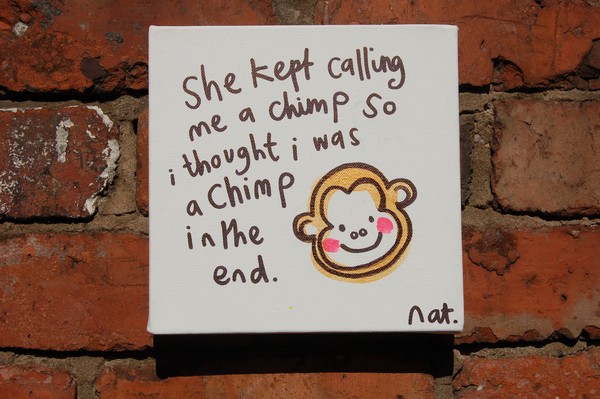 She kept calling
me a chimp so
i thought i was
a chimp
in the
end.
nat.